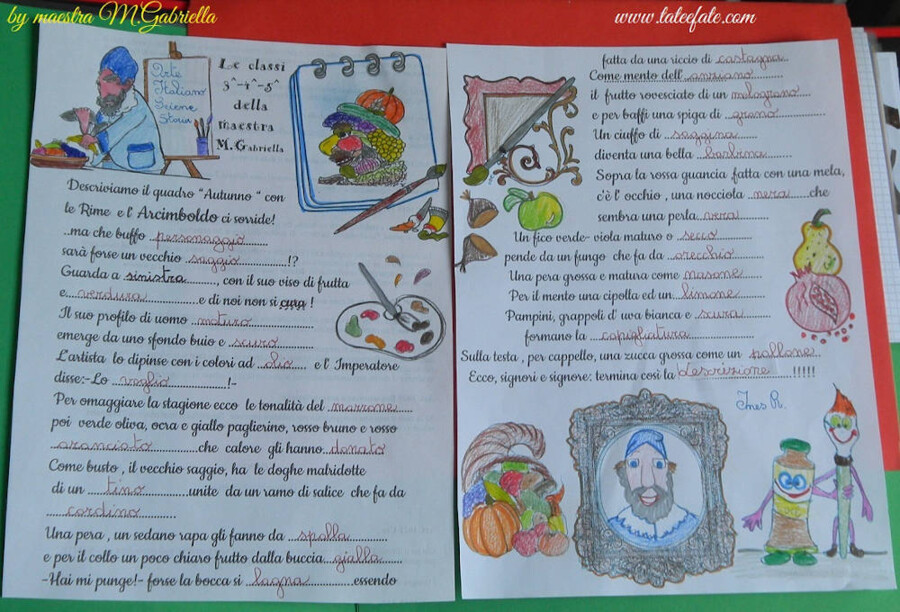 by maestra M.Gabriella
www.lateefate.com
Arte
Italiano
Sciene
Storia
Le classi
3^-4^-5^
della
maestra
M. Gabriella
Descriviamo il quadro "Autunno " con
le Rime e l' Arcimboldo ci sorride!
..ma che buffo personaggio
sarà forse un vecchio saggio !?
Guarda a sinistra, con il suo viso di frutta
e verdura e di noi non si cura !
Il suo profilo di uomo maturo
emerge da uno sfondo buio e scuro
L'artista lo dipinse con i colori ad olio e l' Imperatore
disse:-Lo voglio !-
Per omaggiare la stagione ecco le tonalità del marrone
poi verde oliva, ocra e giallo paglierino, rosso bruno e rosso
aranciato che calore gli hanno donato
Come busto , il vecchio saggio, ha le doghe matridotte
di un tino unite da un ramo di salice che fa da
cordino
Una pera , un sedano rapa gli fanno da spalla
e per il collo un poco chiaro frutto dalla buccia gialla
-Hai mi punge!- forse la bocca si lagna essendo
fatta da una riccio di castagna
Come mento dell' anziano
il frutto rovesciato di un melograno
e per baffi una spiga di grano
Un ciuffo di saggina
diventa una bella barbina
Sopra la rossa guancia fatta con una mela,
c'è l' occhio , una nocciola nera che
sembra una perla vera
Un fico verde- viola maturo o secco
pende da un fungo che fa da orecchio
Una pera grossa e matura come nasone
Per il mento una cipolla ed un limone
Pampini, grappoli d' uva bianca e scura
formano la capigliatura
Sulla testa , per cappello, una zucca grossa come un pallone
Ecco, signori e signore: termina così la descrizione !!!!!
Ines R.